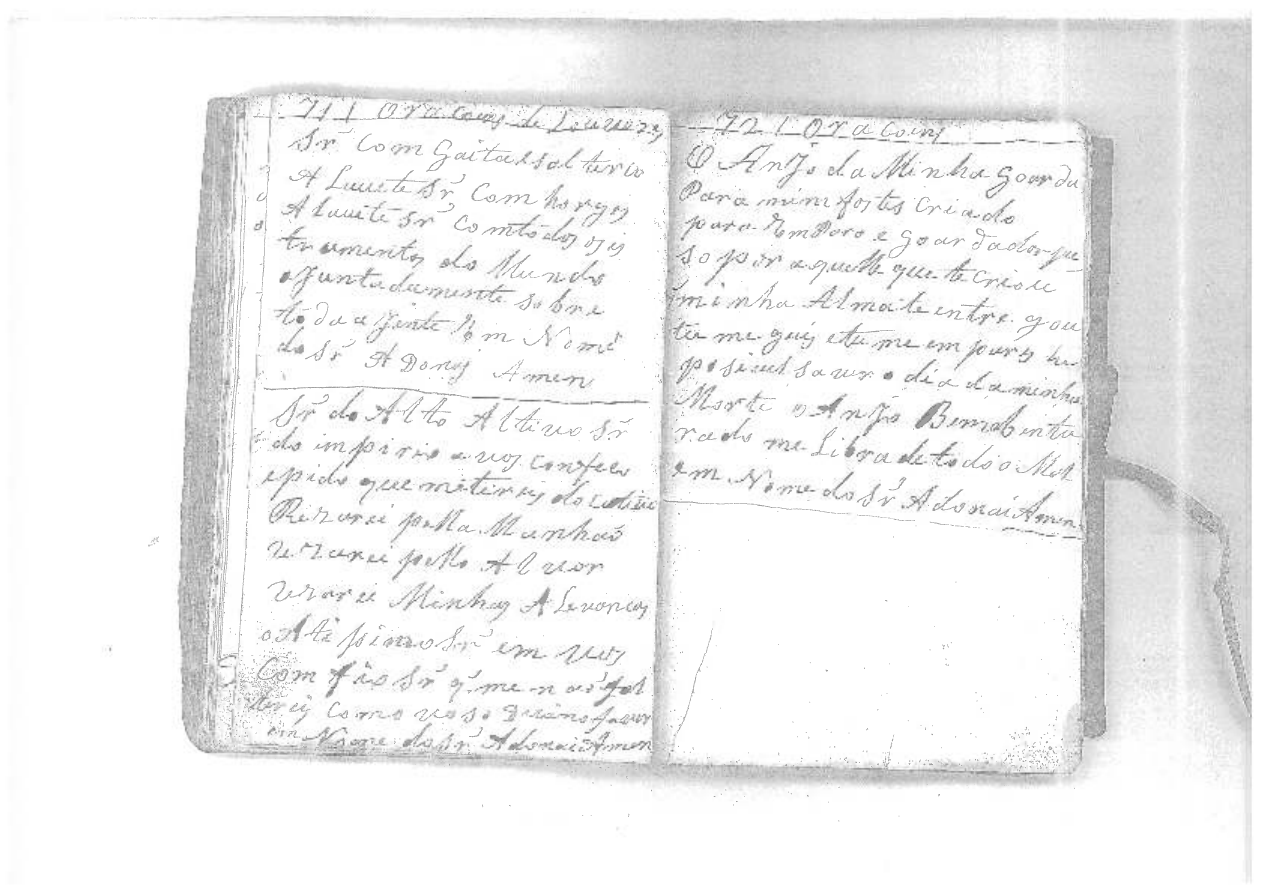 71 | Oracoins de Louvores
Sr̃ Com gaita e salterio
A Luvite Sr̃ Com horgos
A Lavite Sr̃ Comtodos os is
trumentos do Mundo
ajuntadamente sobre
toda a jente Em Nome
do Sr̃ A Donai Amen
Sr̃ do Alto Altivo Sr̃
do impirio a vos confeco
e pido que me tireis do
Rezarei pella Manhaõ
rezarei pello Alvor
rezarei Minhas A Levoncas
o Altipimo Sr̃ em vos
Com fio Sr̃ q̃ me naõ fal
tereis como voso Devino favor
em Nome do Sr̃ Adonai Amen
72 | Oracoins
O AnJo da Minha goarda
Para mim fostes criado
para Emparo e goardador pe
so por aquelle que te criou
minha Alma te entrego
tu me guis e tu me empares
posivel saver o dia da minha
Morte o AnJo Bemabentu
rado me Libra de todo o Mal
em Nome do Sr̃ Adonai Amen